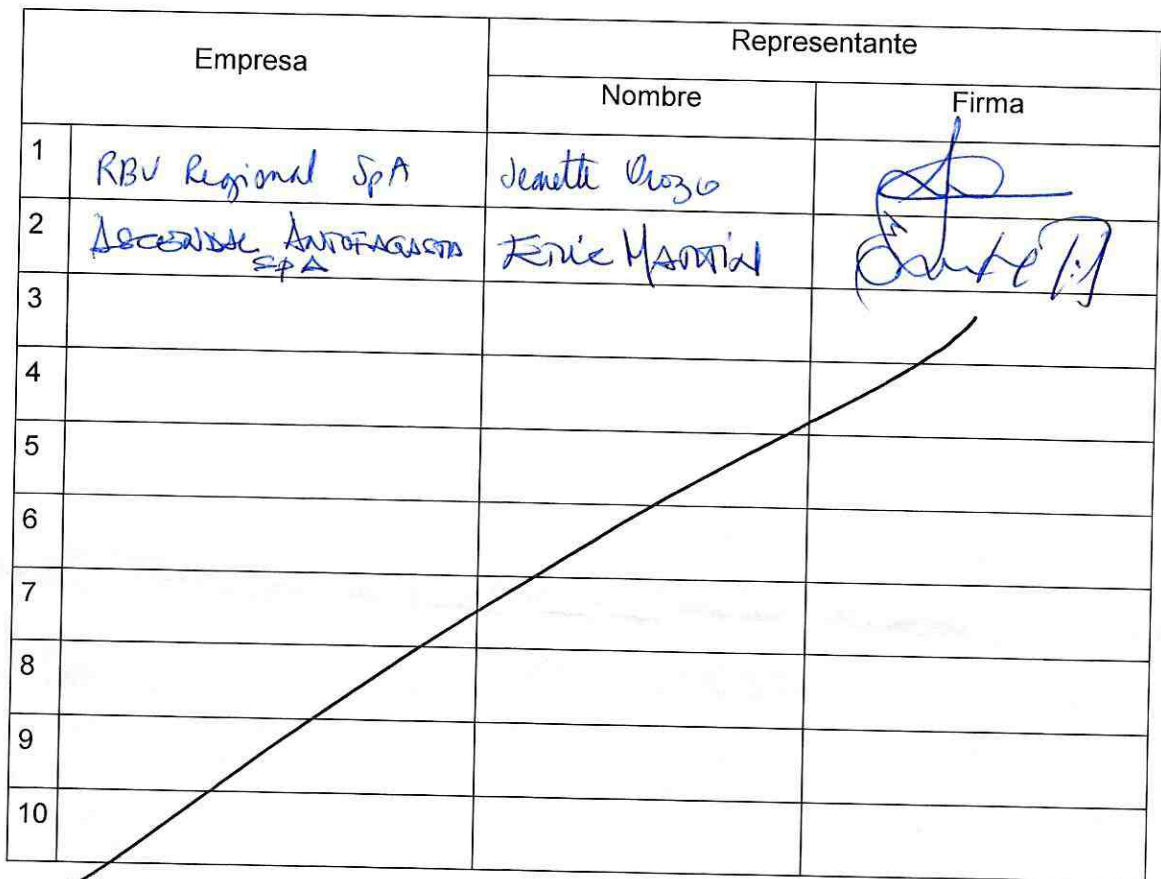 Empresa
Representante
Nombre
Firma
1 RBU Regional SpA Jeanette Orozco
2 ASCENDAL ANTOFAGASTA SpA ERIC MARTIN
3
4
5
6
7
8
9
10